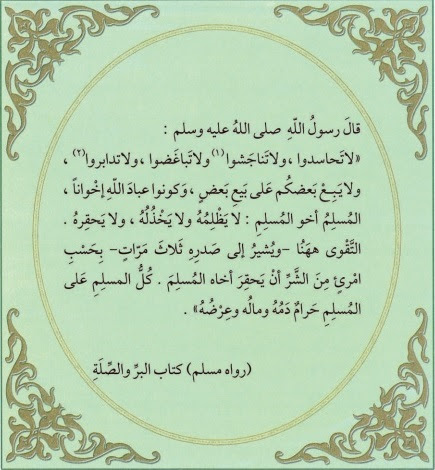 قالَ رسولُ اللّهِ صلى اللهُ عليه وسلم :
«لاتَحاسدوا ، ولاتَناجَشوا(١) ولاتَباغَضوا ، ولاتدابروا(٢) ،
ولايَبِعْ بَعضكُم عَلى بَيعِ بَعضٍ ، وَكونوا عبادَ اللّهِ إخْواناً ،
المُسلِمُ أخو المُسلِمِ : لا يَظْلِمُهُ ولا يَخْذُلُهُ ، ولا يَحقِرهُ .
التَّقْوى هَهُنا -ويُشيرُ إلى صَدرِهِ ثَلاثَ مَرّاتِ- بِحَسْبِ
امْرئٍ مِنَ الشَّرِّ أنْ يَحقِرَ أخاه المُسلِمَ . كُلُّ المسلِمِ عَلى
المُسلِمِ حَرامٌ دَمُهُ ومالُه وعِرْضُهُ» .
(رواه مسلم) كتاب البرِّ والصِّلَةِ